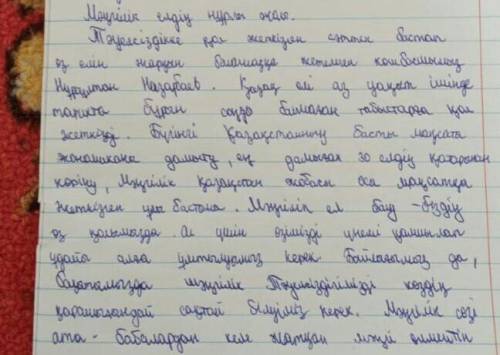 Мәңгілік елдің нұрлы жолы.
Тәуелсіздікке қол жеткізген сәттен бастап
өз елін жарқын болашаққа жетелеген көшбасшымыз
Нұрсұлтан Назарбаев. Қазақ елі аз уақыт ішінде
тарихта бұрын соңды болмаған табыстарға қол
жеткізді. Бүгінгі Қазақстанның басты мақсаты
экономиканы дамыту, ең дамыған 30 елдің қатарынан
көріну, Мәңгілік Қазақстан жобасы осы мақсатқа
жеткізген ұлы бастама. Мәңгілік ел болу - біздің
өз қолымызда. Ол үшін өзімізді үнемі қамшылап
ұдайы алға ұмтылуымыз керек. Байлығымыз да,
бақытымызда мәңгілік Тәуелсіздігімізді көздің
қарашығындай сақтай білуіміз керек. Мәңгілік сөзі
ата - бабалардан келе жатқан мәңгі өлмейтін